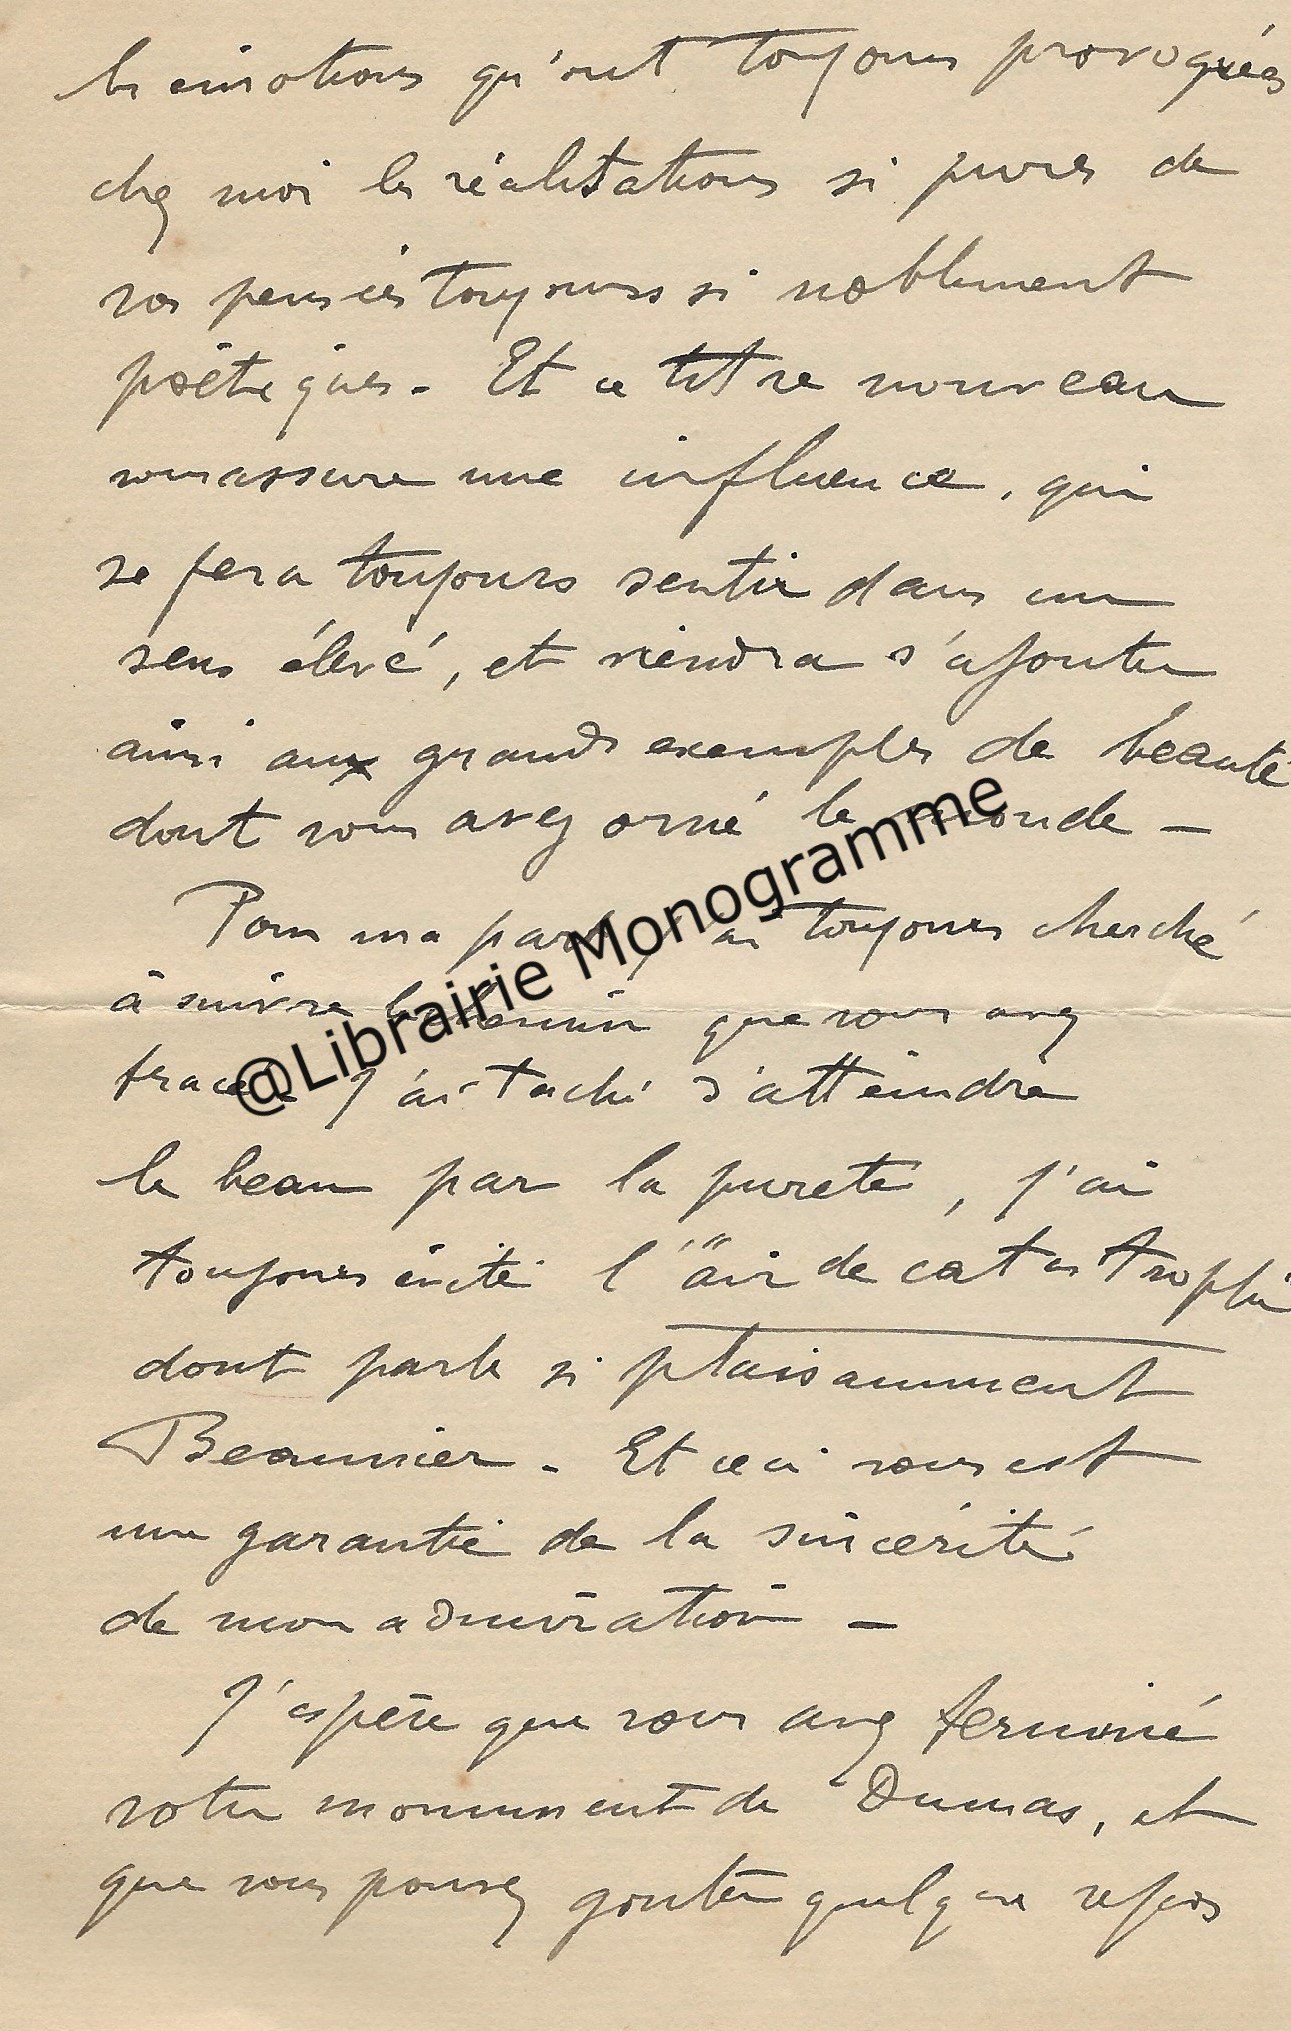 les émotions qu'ont toujours provoquées
chez moi les réalisations si pures de
vos pensées toujours si noblement
poëtiques. Et ce titre nouveau
vous assure une influence, qui
se fera toujours sentir dans un
sens élevé, et viendra s'ajouter
ainsi aux grands exemples de beauté
dont vous avez orné le monde —
Pour ma part, j'ai toujours cherché
à suivre le chemin que vous avez
tracé. J'ai taché d'atteindre
le beau par la pureté, j'ai
toujours évité l'"air de catastrophe
dont parle si plaisamment
Beaunier. Et ceci vous est
une garantie de la sincérité
de mon admiration —
J'espère que vous avez terminé
votre monument de Dumas, et
que vous pouvez goûter quelque repos
@Librairie Monogramme